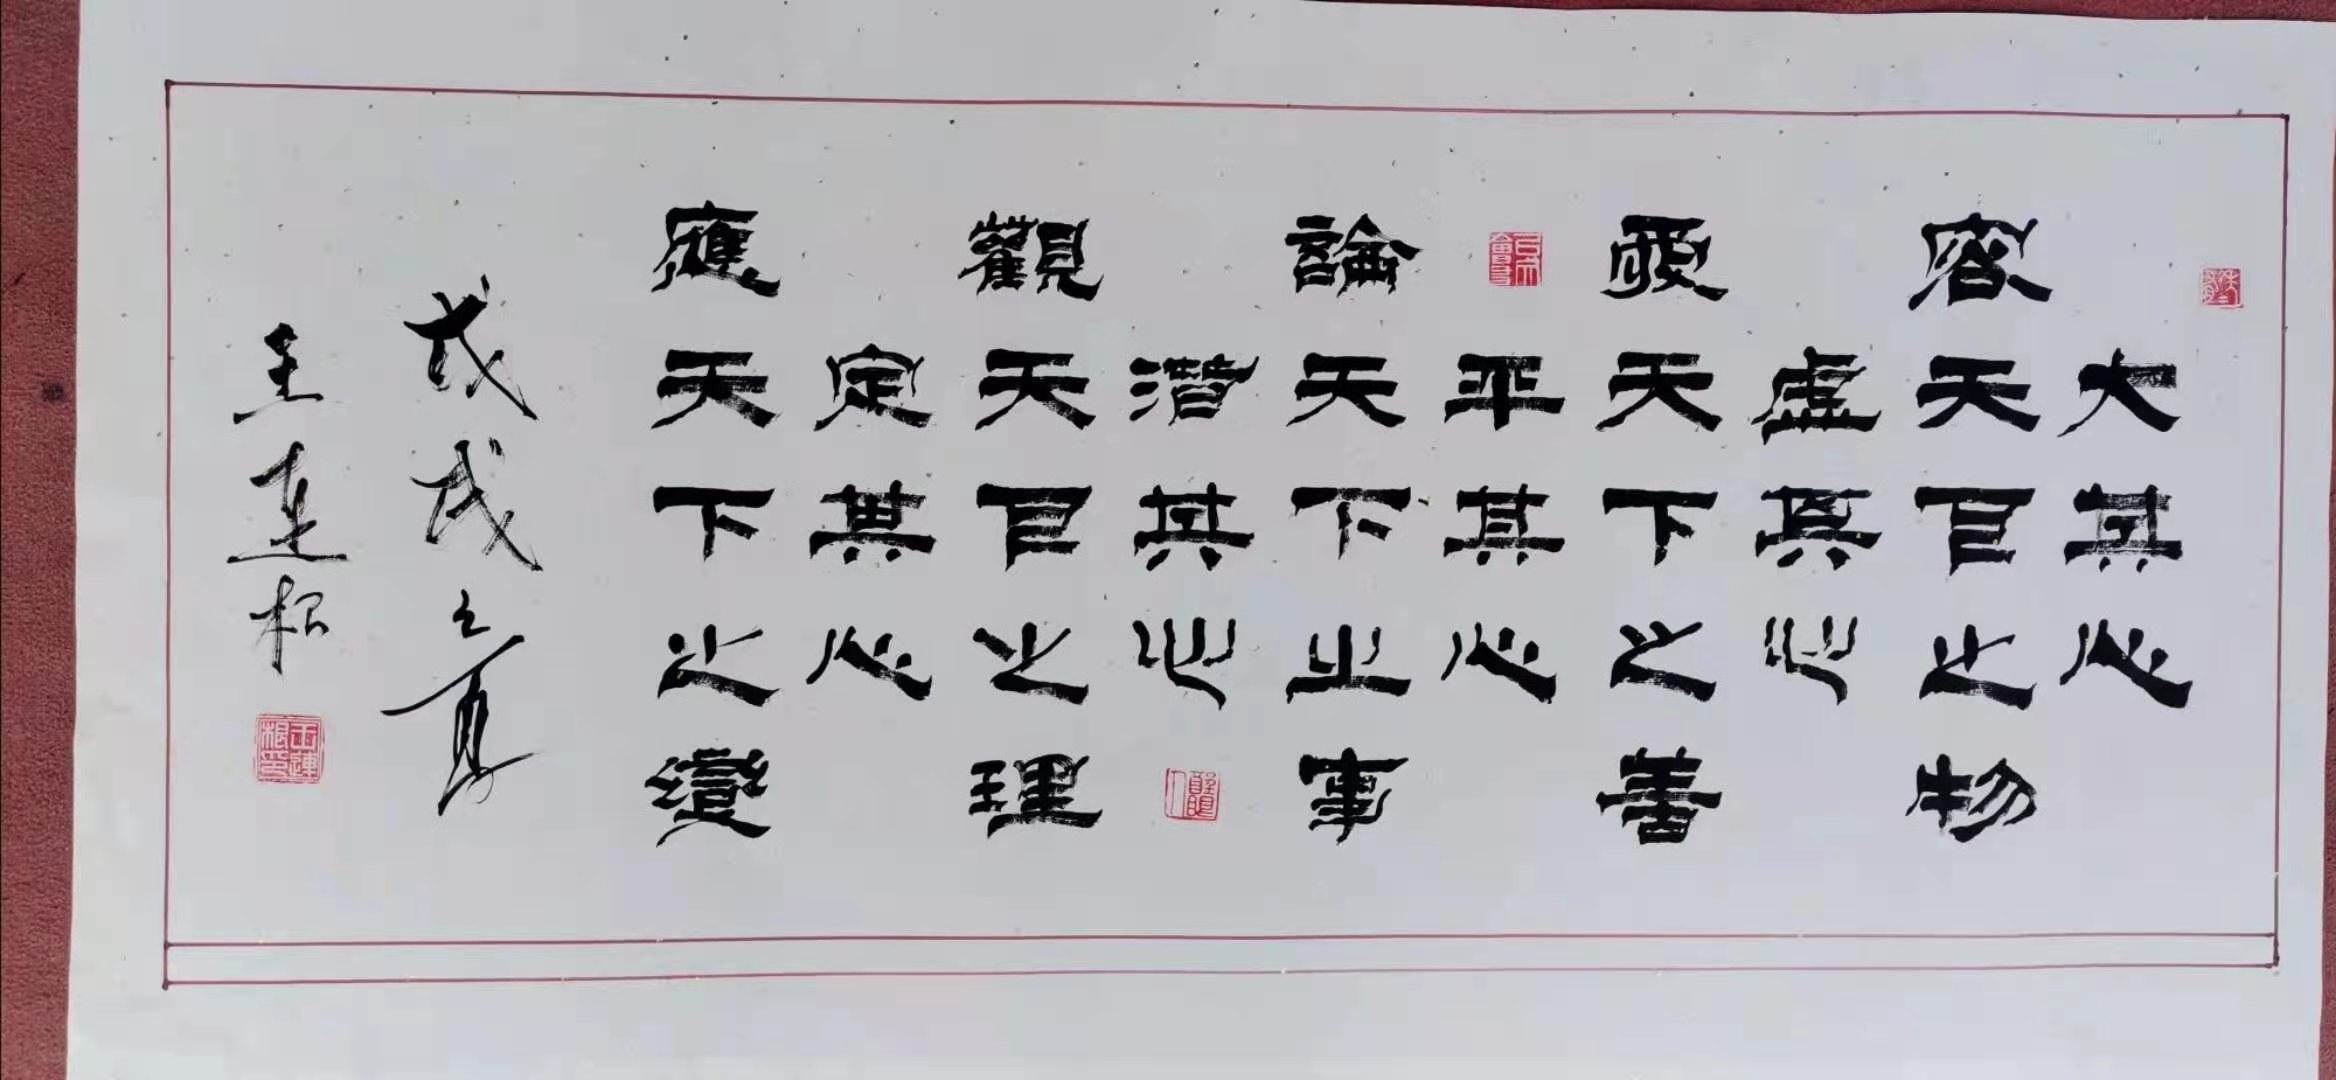 大其心
容天下之物
虛其心
愛天下之善
平其心
論天下之事
潛其心
觀天下之理
定其心
應天下之變
戊戌之夏
王連根
王連根印